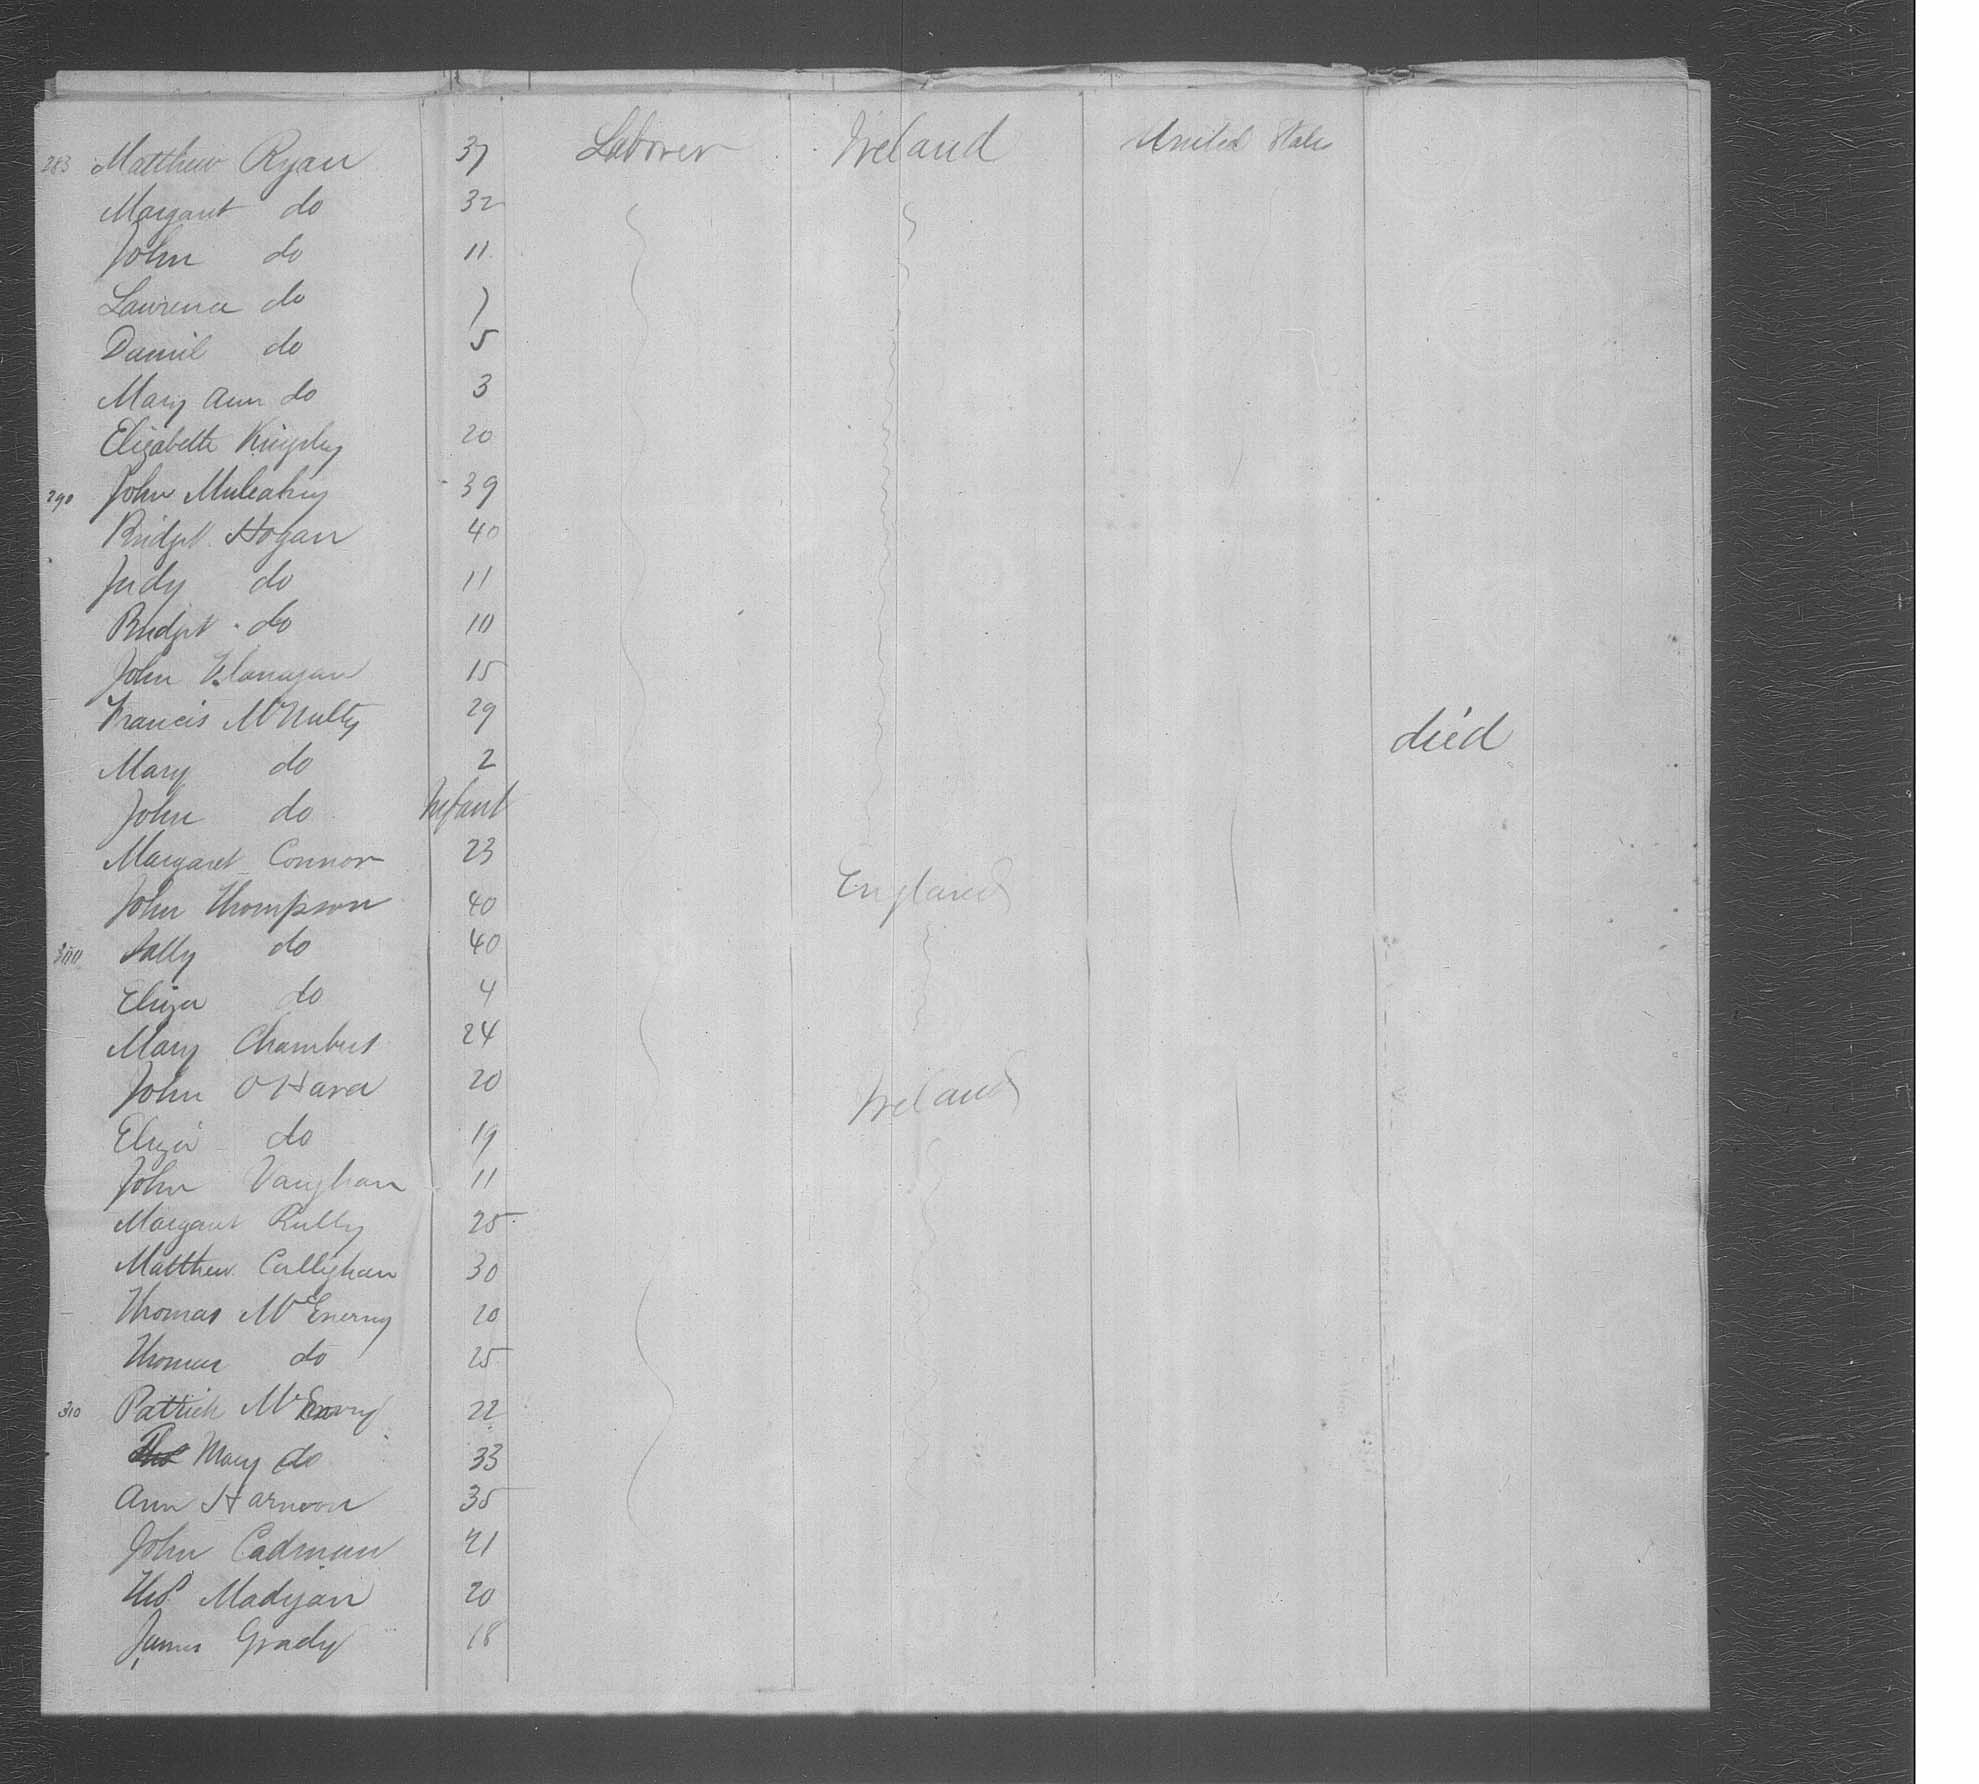 283 Matthew Ryan 37 Laborer Ireland United States
Margaret do 32
John do 11
Laurence do 7
Daniel do 5
Mary Ann do 3
Elizabeth Kingsley 20
290 John Mulcahy 39
Bridget Hogan 40
Judy do 11
Bridget do 10
John Flanagan 15
Francis McNulty 29 died
Mary do 2
John do Infant
Margaret Connor 23
John Thompson 40 England
300 Sally do 40
Eliza do 4
Mary Chambers 24
John O Hara 20 Ireland
Eliza do 19
John Vaughan 11
Margaret 25
Matthew Callighan 30
Thomas McEnerny 20
Thomas do 25
310 Patrick 22
Tho Mary do 33
Ann 35
John Cadman 21
Tho Madigan 20
James Grady 18